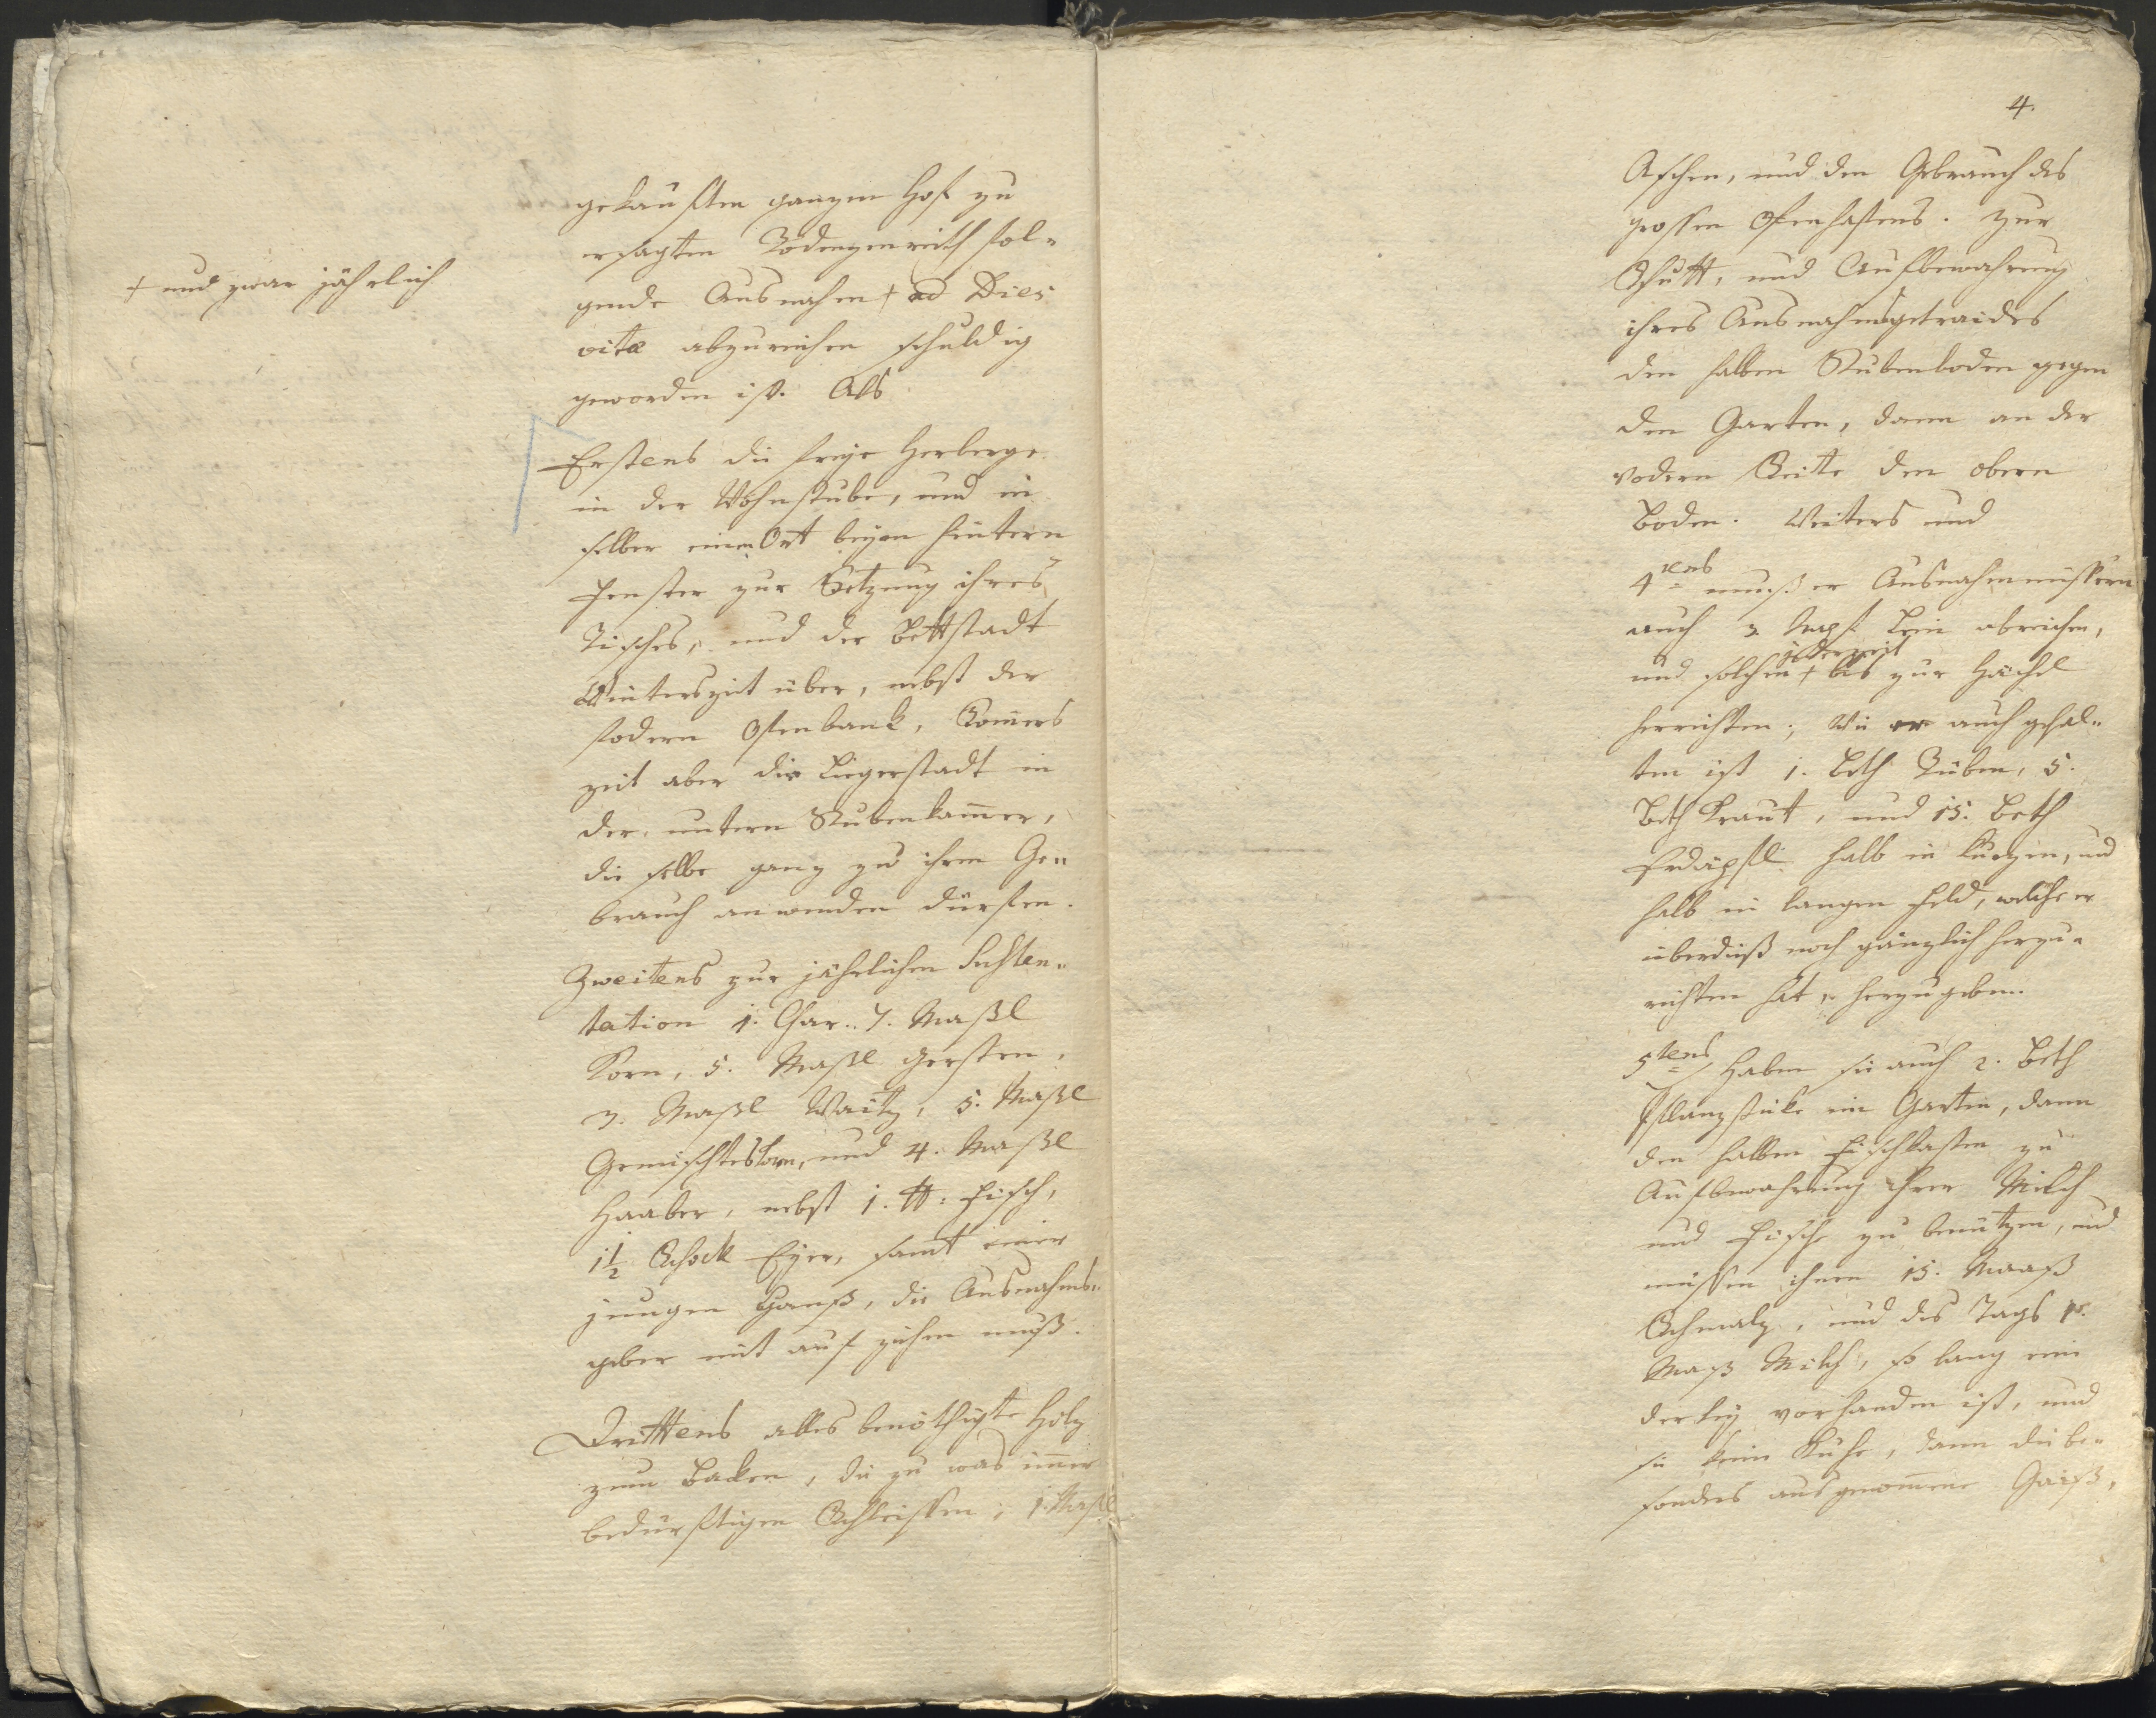 gekauften ganzen Hof zu
ersagten Rodenzenreith fol-
+ und zwar jährlich
gende Ausnahm + ad Dies
vitæ abzureichen schuldig
geworden ist. Als
Erstens die freye Herberge
in der Wohnstube, und in
selber einen Ort beym hintern
Fenster zur Setzung ihres
Tisches, und der Bettstadt
Winterszeit über, nebst der
fodern Ofenbank, Somers
zeit aber die Liegerstadt in
der untern Stubenkamer,
die selbe ganz zu ihren Ge-
brauch anwenden dürfen.
Zweitens zur jährlichen Susten-
tation 1. Char. 7. Maßl
Korn, 5. Maßl Gersten,
3. Maßl Waitz, 5. Maßl
Gemischteskorn, und 4. Maßl
Haaber, nebst 1. ℔. Fisch,
1½ Schock Eyer, samt einer
jungen Ganß, die Ausnahms-
geber mit auf ziehen muß.
Drittens alles benöthigte Holz
zum Baken, die zu was imer
bedürftigen Schleissen, 1. Maßl
4.
Aschen, und den Gebrauch des
grossen Ofenhafens. Zur
Schütt, und Aufbewahrung
ihres Ausnahmsgetraides
den halben Stubenboden gegen
den Garten, dann an der
vodern Seite den obern
Boden. Weiters und
4tens muß er Ausnahmnüssern
auch 3 Napf Lein abreichen,
jederzeit
und solchen + bis zur Hachl
herrichten; Wie er auch gehal-
ten ist 1. Beth Rüben, 5.
Beth Kraut, und 15. Beth
Erdäpfel halb in kurzen, und
halb in langen Feld, welche er
überdiß noch gänzlich herzu-
richten hat, herzugeben.
5tens Haben sie auch 2. Beth
Pflanzstücke im Garten, dann
den halben Fischkasten zu
Aufbewahrung ihrer Milch
und Fische zu benützen, und
müssen ihnen 15. Maaß
Schmalz, und des Tags 1.
Maß Milch, so lang eine
derley vorhanden ist, und
sie keine Kühe, dann die be-
sonders ausgenomene Gaiß,